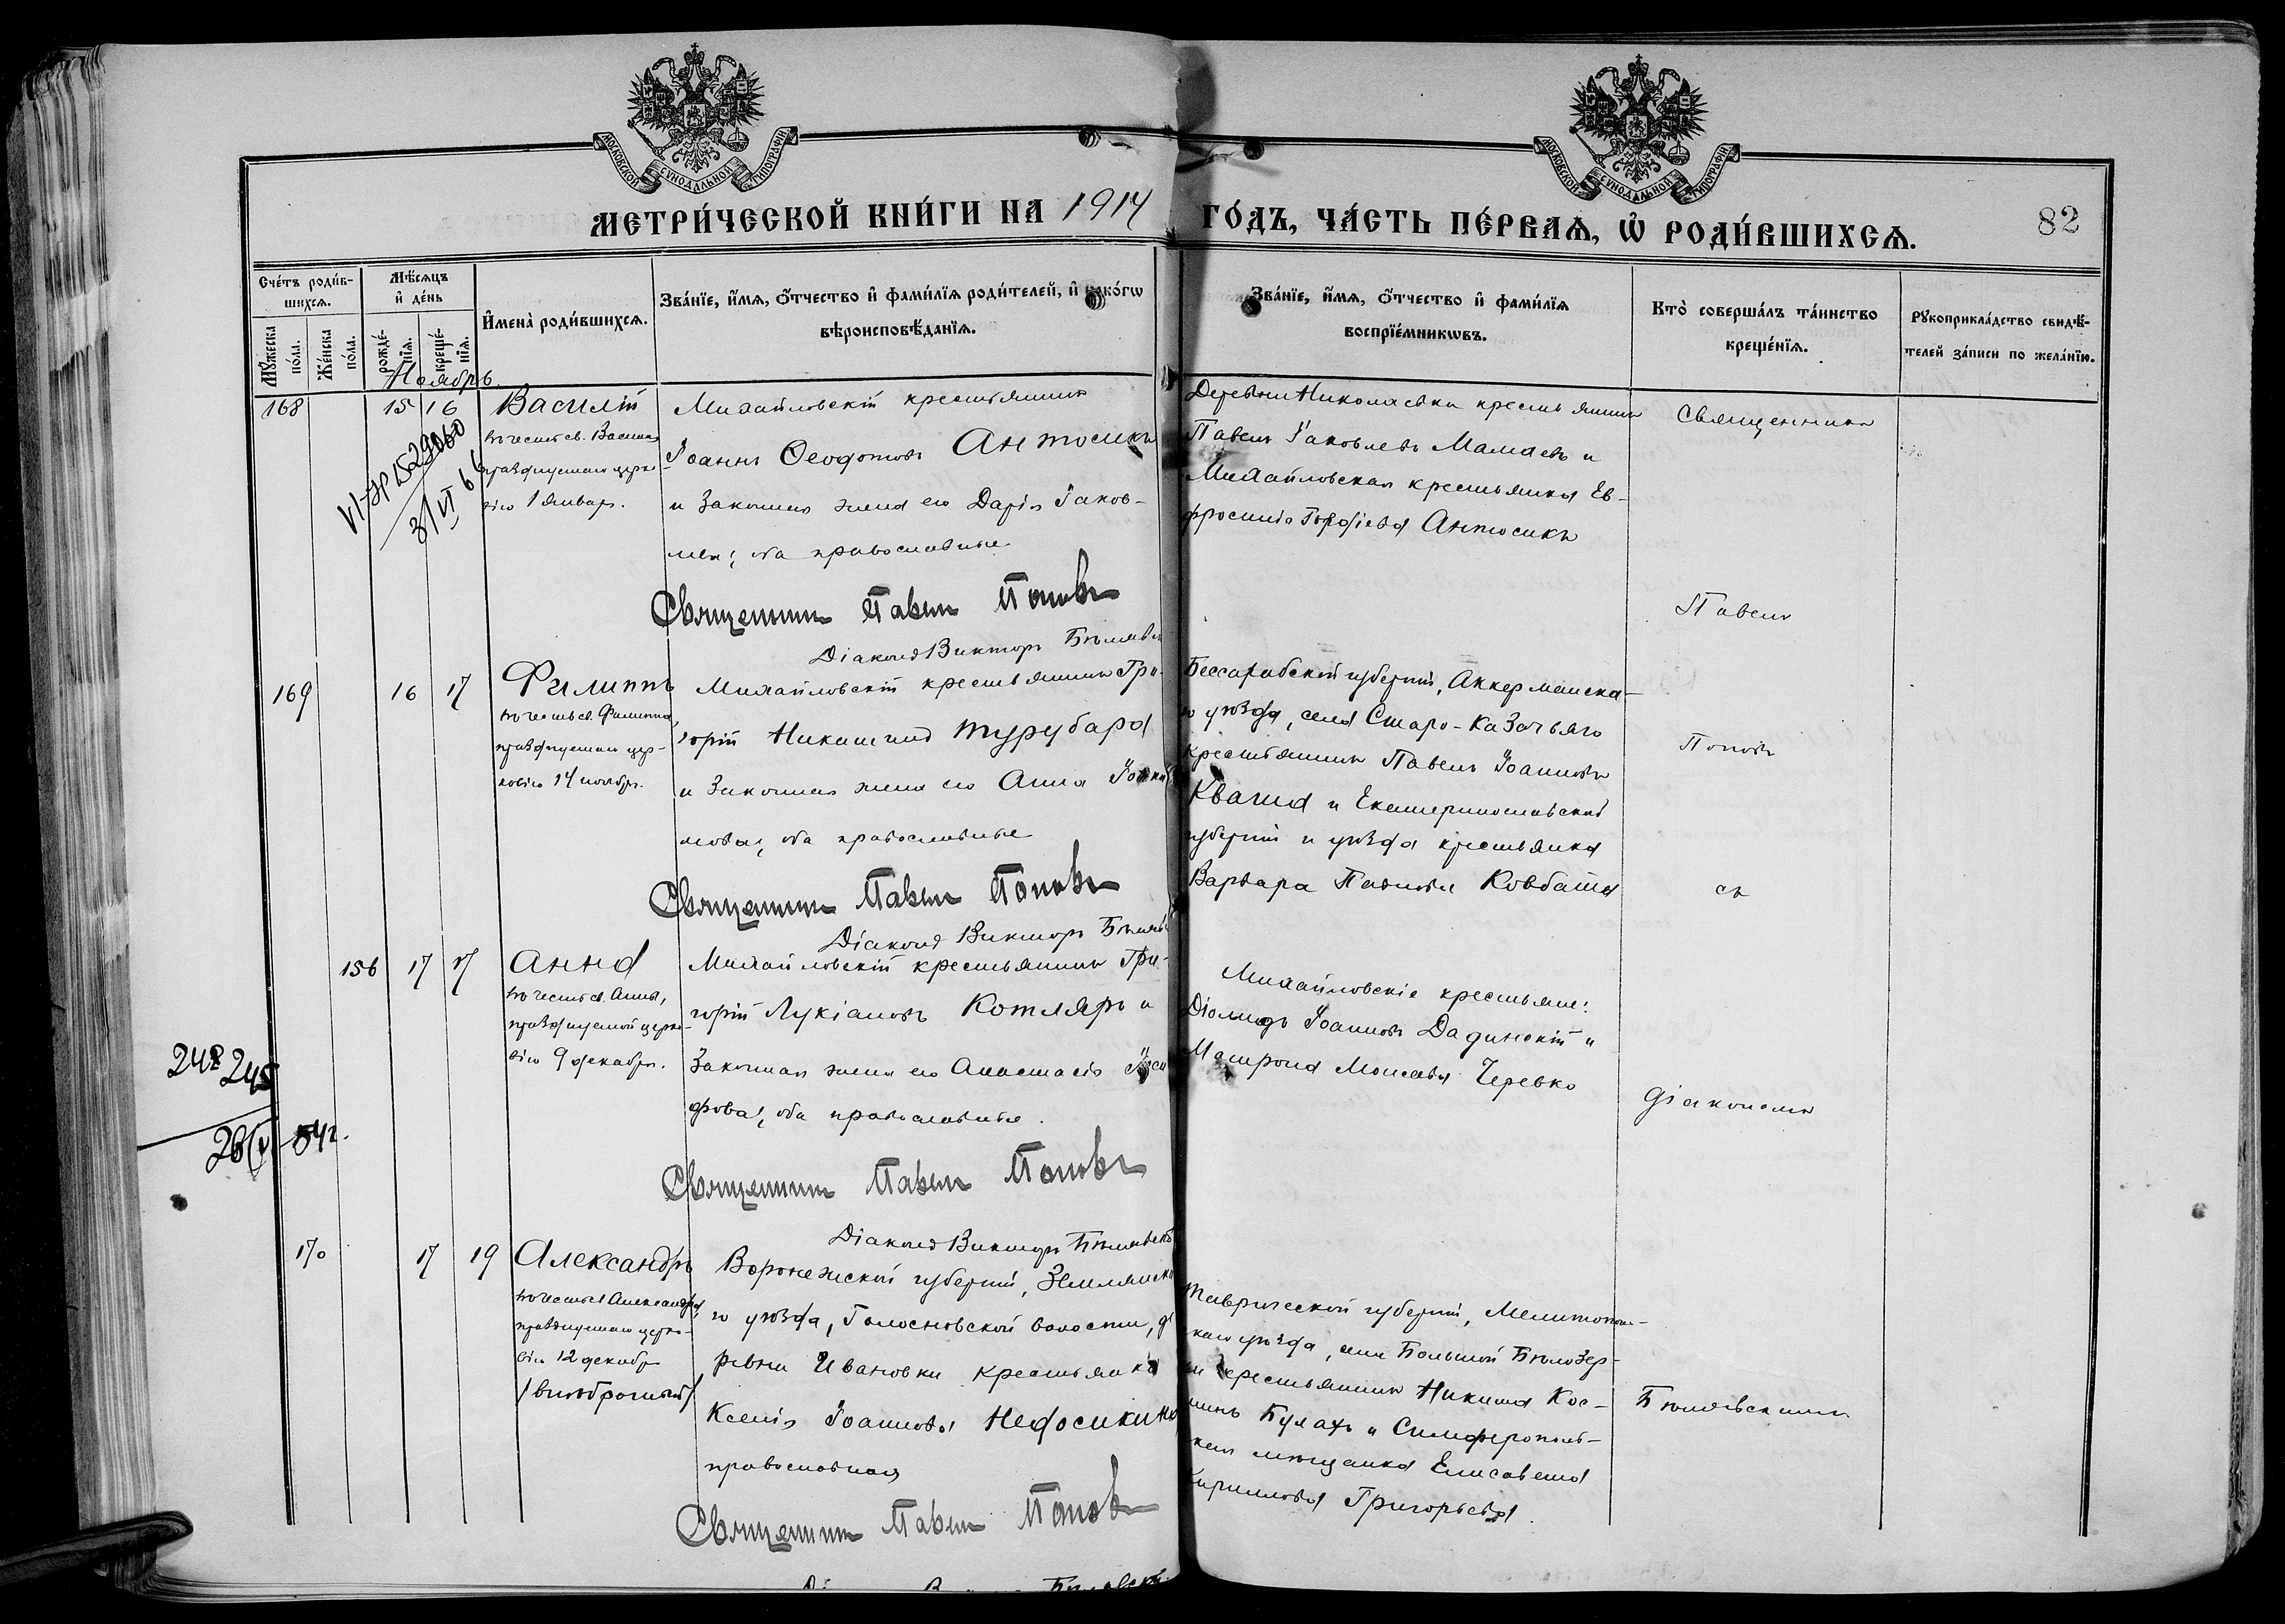 МОСКОВСКОЙ СѴНОДАЛЬНОЙ ТИПОГРАФІИ
МОСКОВСКОЙ СѴНОДАЛЬНОЙ ТИПОГРАФІИ
МЕТРИ́ЧЕСКОЙ КНИ́ГИ НА 1914 ГО́ДЪ, ЧА́СТЬ ПЕ́РВАѦ, Ѽ РОДИ́ВШИХСѦ.
82
Сче́тъ роди́в-
шихсѧ.
Мꙋ́жеска по́ла.
Же́нска по́ла.
Мѣ́сѧцъ
и҆ де́нь
рожде́-
нїѧ.
креще́-
нїѧ.
И҆мена̀ роди́вшихсѧ.
Зва́нїе, и҆́мѧ, ѻ҆́тчество и҆ фами́лїѧ роди́телей, и҆ како́гѡ
вѣроисповѣ́данїѧ.
Зва́нїе, и҆́мѧ, ѻ҆́тчество и҆ фами́лїѧ
воспрїе́мникѡвъ.
Кто̀ соверша́лъ та́инство
креще́нїѧ.
Рꙋкоприкла́дство свидѣ́-
телей за́писи по жела́нїю.
Ноябрь
168
15
16
Василій
въ честь св. Василія
празднуемаго церко-
вію 1 январ.
Михайловскій крестьянинъ
Іоаннъ Ѳеодотовъ Антосикъ
и законная жена его Дарія Іаков-
лева, оба православные
Священникъ Павелъ Поповъ
Діаконъ Викторъ
Деревни Николаевки крестьянинъ
Павелъ Іаковлевъ Мамаевъ и
Михайловская крестьянка Ев-
фросинія Антосикъ
Священникъ
Павелъ
Поповъ
съ
діакономъ
Бѣлявскимъ
169
16
17
Филиппъ
въ честь св. Филиппа,
празднуемаго цер-
ковію 14 ноября.
Михайловскій крестьянинъ Гри-
горій Турубара
и законная жена его Анна
оба православные
Священникъ Павелъ Поповъ
Діаконъ Викторъ
Бессарабской губерніи, Аккерманска-
го уѣзда, села Старо-Казачьяго
крестьянинъ Павелъ Іоанновъ
Кваша и Екатеринославской
губерніи и уѣзда крестьянка
Варвара Ковбаса
156
17
17
Анна
въ честь св. Анны,
празднуемой церко-
вію 9 декабря.
Михайловскій крестьянинъ Гри-
горій Лукіановъ Котляръ и
законная жена его Анастасія Іоси
фова, оба православные.
Священникъ Павелъ Поповъ
Діаконъ Викторъ Бѣлявскій
Михайловскіе крестьяне:
Діомидъ Іоанновъ Дадинскій и
Матрона Моисеева Черевко
170
17
19
Александръ
въ честь св. Александра,
празднуемаго церко-
вію 12 декабря
/внѣбрачный/
Воронежской губерніи, Землянска
го уѣзда, Голосновской волости, де
ревни Ивановки крестьянка
Ксенія Іоаннова Недосикина
православная
Священникъ Павелъ Поповъ
Таврической губерніи, Мелитополь-
скаго уѣзда, села Большой Бѣлозер-
ки крестьянинъ Никита Кос-
минъ Булахъ и Симферополь-
ская мѣщанка Елисавета
Кириллова Григорьева.